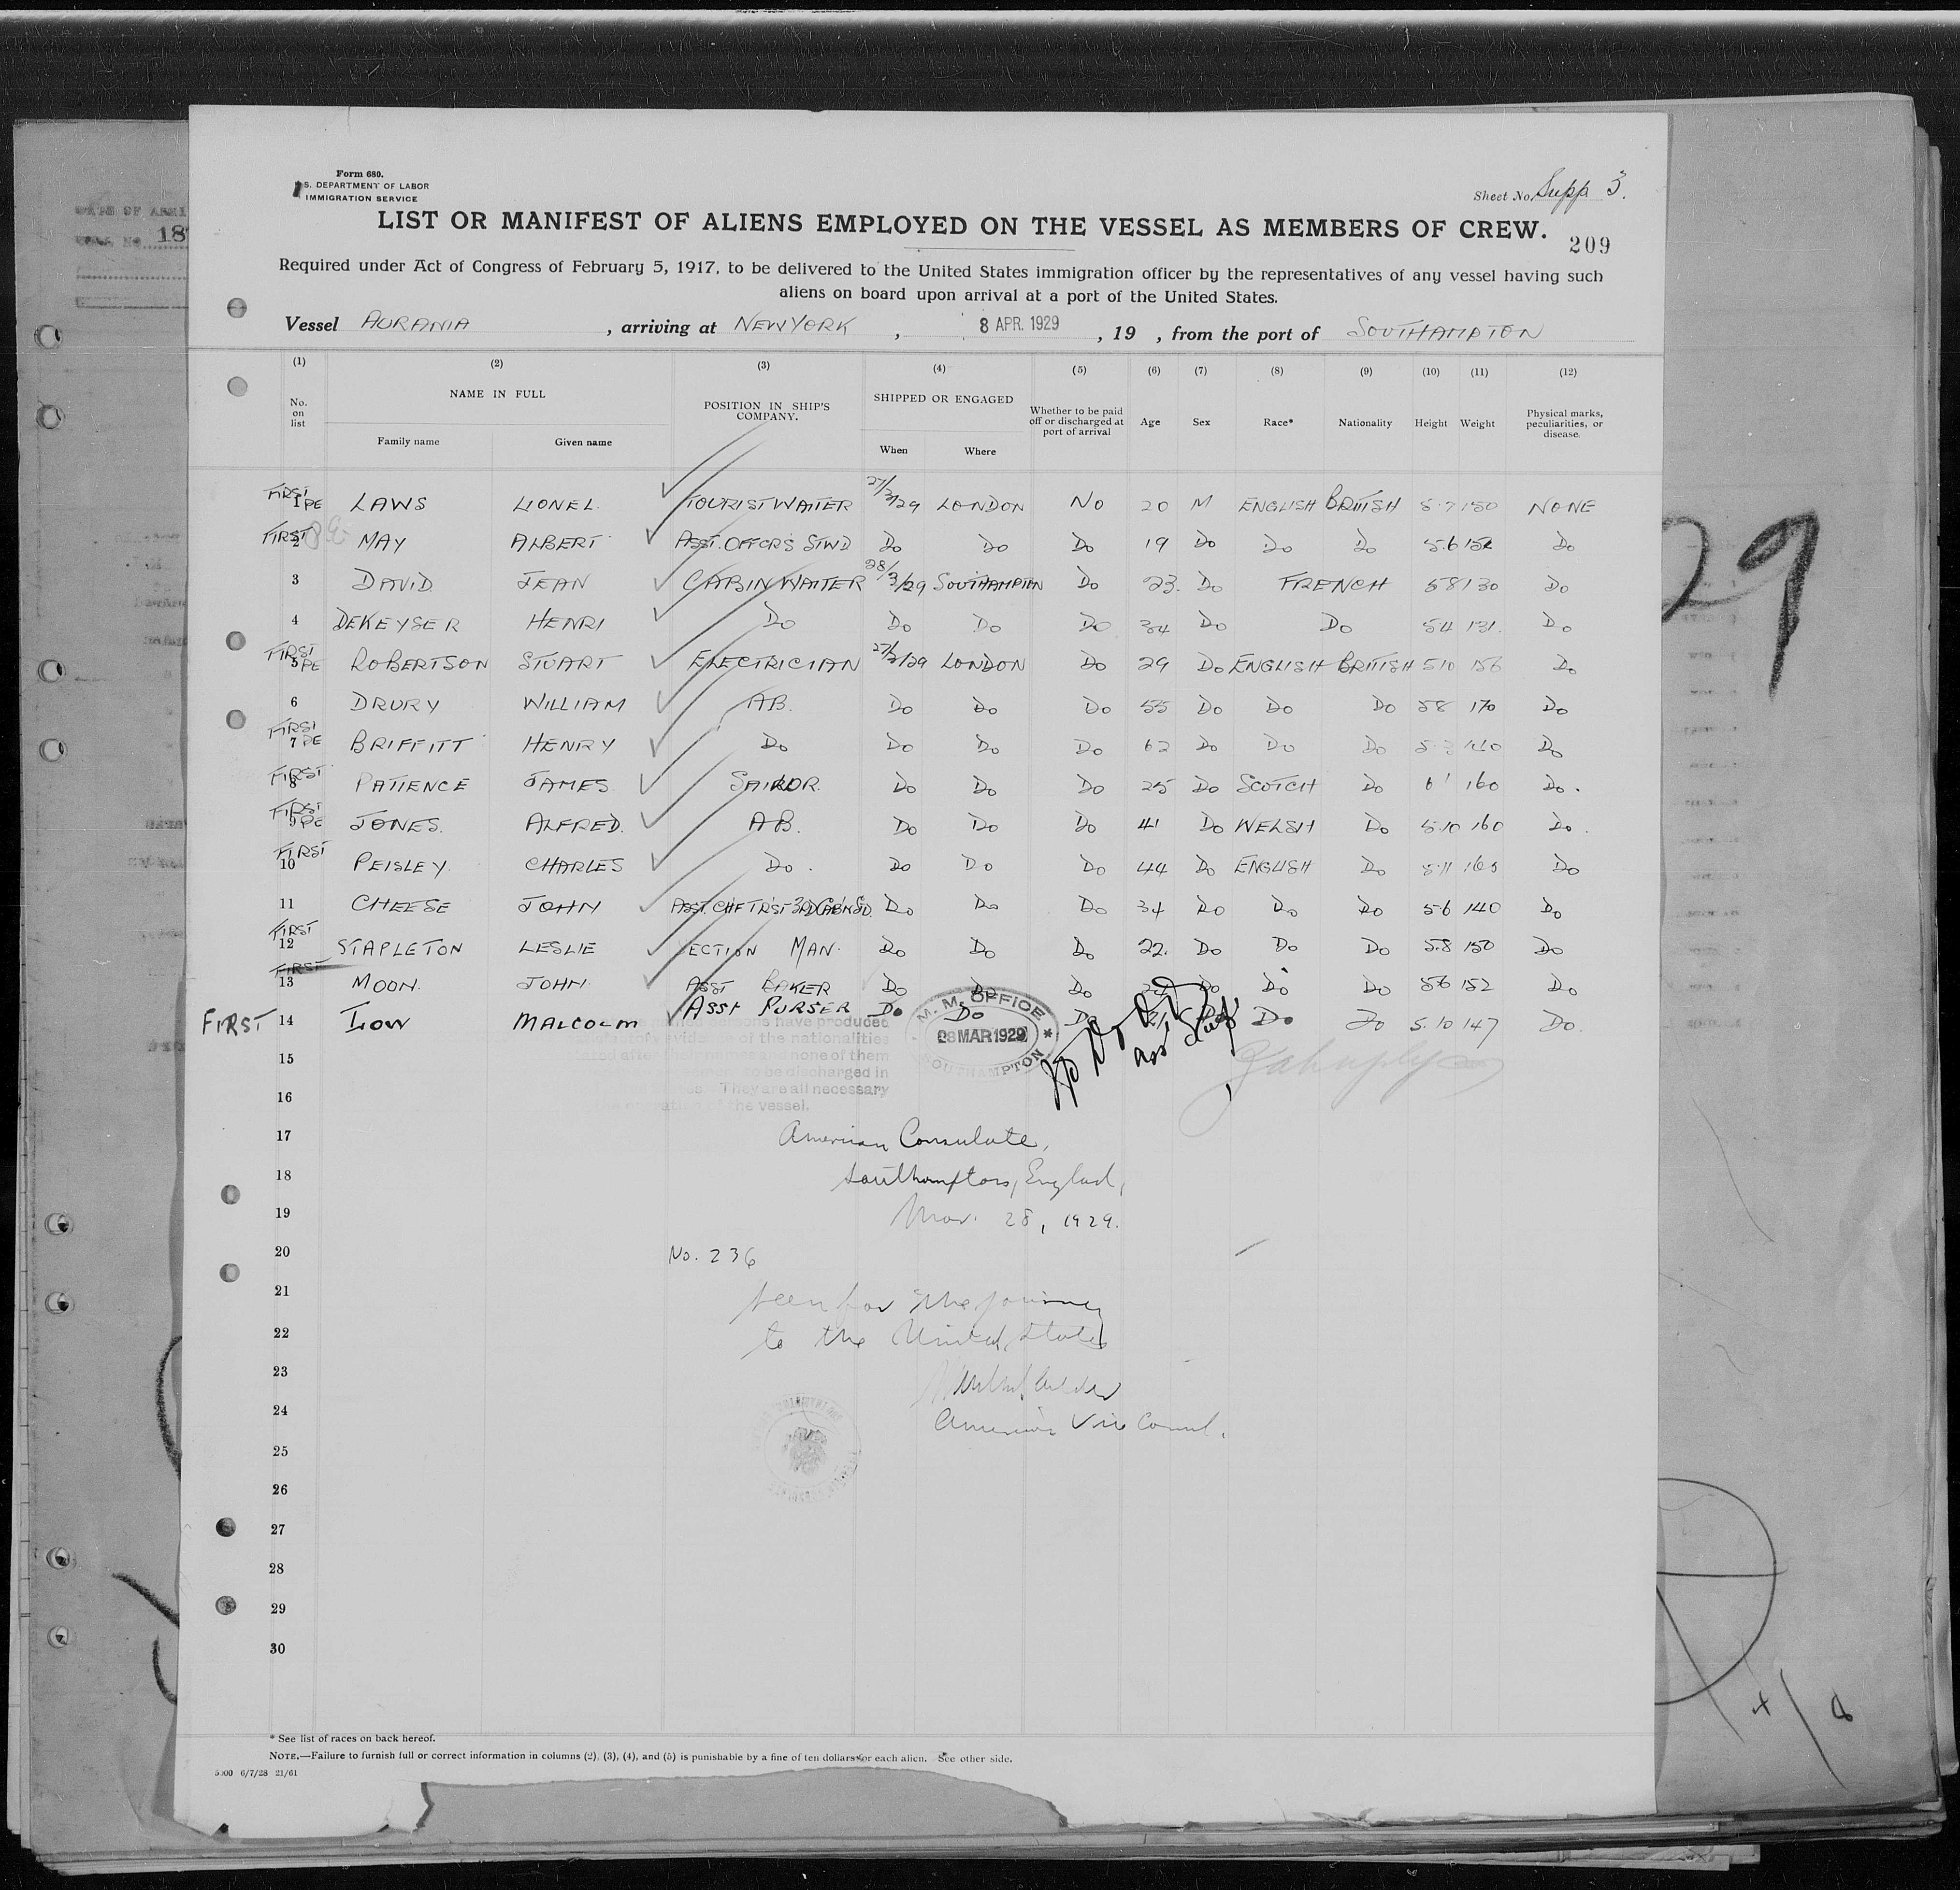 Form 680.
S. DEPARTMENT OF LABOR
IMMIGRATION SERVICE
Sheet No. Supp 3.
LIST OR MANIFEST OF ALIENS EMPLOYED ON THE VESSEL AS MEMBERS OF CREW.
209
Required under Act of Congress of February 5, 1917, to be delivered to the United States immigration officer by the representatives of any vessel having such
aliens on board upon arrival at a port of the United States.
Vessel AURANIA , arriving at NEW YORK , 8 APR. 1929 , 19 , from the port of SOUTHAMPTON
(1) (2) (3) (4) (5) (6) (7) (8) (9) (10) (11) (12)
No. on list NAME IN FULL POSITION IN SHIP'S COMPANY. SHIPPED OR ENGAGED Whether to be paid off or discharged at port of arrival Age Sex Race* Nationality Height Weight Physical marks, peculiarities, or disease.
Family name Given name When Where
FIRST 1 PE LAWS LIONEL. TOURIST WAITER 27/3/29 LONDON NO 20 M ENGLISH BRITISH 5.7 150 NONE
FIRST 2 MAY ALBERT ASST. OFFCRS STWD Do Do Do 19 Do Do Do 5.6 152 Do
3 DAVID. JEAN CABIN WAITER 28/3/29 SOUTHAMPTON Do 23. Do FRENCH 5 8 130 Do
4 DEKEYSER HENRI Do Do Do Do 34 Do Do 5 4 131. Do
FIRST 5 PE ROBERTSON STUART ELECTRICIAN 27/3/29 LONDON Do 29 Do ENGLISH BRITISH 5 10 156 Do
6 DRURY WILLIAM AB. Do Do Do 55 Do Do Do 5 8 170 Do
FIRST 7 PE BRIFFITT HENRY Do Do Do Do 62 Do Do Do 140 Do
FIRST 8 PATIENCE JAMES. SAILOR. Do Do Do 25 Do SCOTCH Do 6' 160 Do.
FIRST 9 PE JONES. ALFRED. AB. Do Do Do 41 Do WELSH Do 5.10 160 Do.
FIRST 10 PEISLEY. CHARLES Do. Do Do Do 44 Do ENGLISH Do 5.11 165 Do
11 CHEESE JOHN ASST. CHF TRST 3RD CABN SD. Do Do Do 34 Do Do Do 5 6 140 Do
FIRST 12 STAPLETON LESLIE SECTION MAN. Do Do Do 22. Do Do Do 5.8 150 Do
FIRST 13 MOON. JOHN. ASST BAKER Do Do Do Do Do Do 5 6 152 Do
FIRST 14 LOW MALCOLM ASST PURSER Do Do Do 21 Do Do Do 5.10 147 Do.
persons have produced
evidence of the nationalities
stated after their names and none of them
to be discharged in
They are all necessary
the operation of the vessel.
M. M. OFFICE
28 MAR 1929
SOUTHAMPTON
15
16
17 American Consulate,
18 Southampton, England,
19 Mar. 28, 1929.
20 No. 236
21 Seen for the journey
22 to the United States
23
24 American Vice Consul.
25
26
27
28
29
30
* See list of races on back hereof.
NOTE.—Failure to furnish full or correct information in columns (2), (3), (4), and (5) is punishable by a fine of ten dollars for each alien. See other side.
5000 6/7/28 21/61
29
4/8